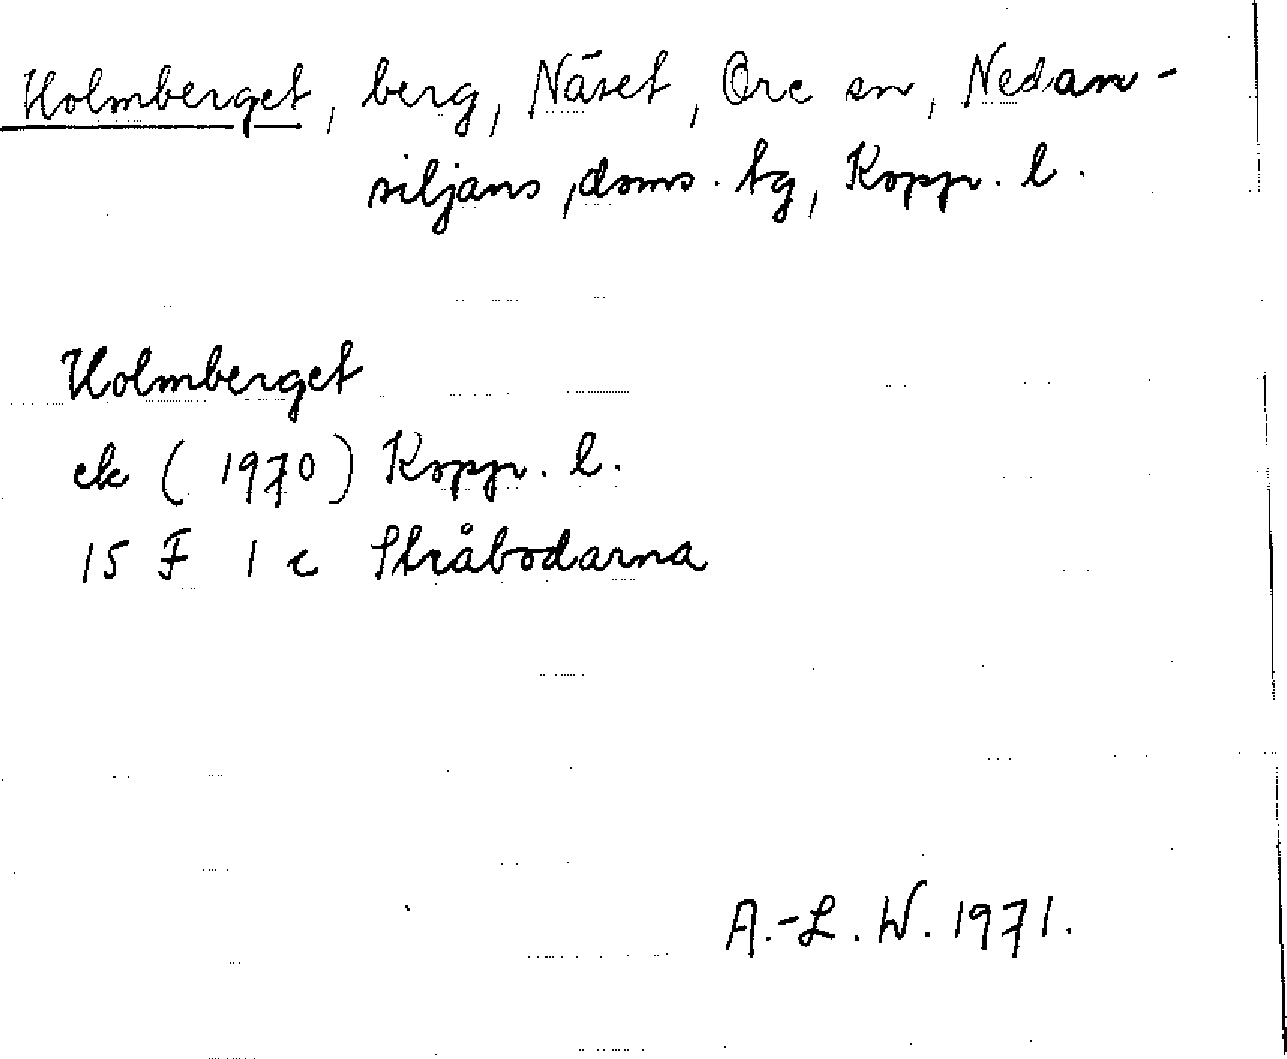 Holmberget, berg, Näset, Ore sn, Nedan-
siljans, doms. tg, Kopp. l.
Holmberget
ek (1970) Kopp. l.
15 F 1 c Stråbodarna
A.-L. W. 1971.